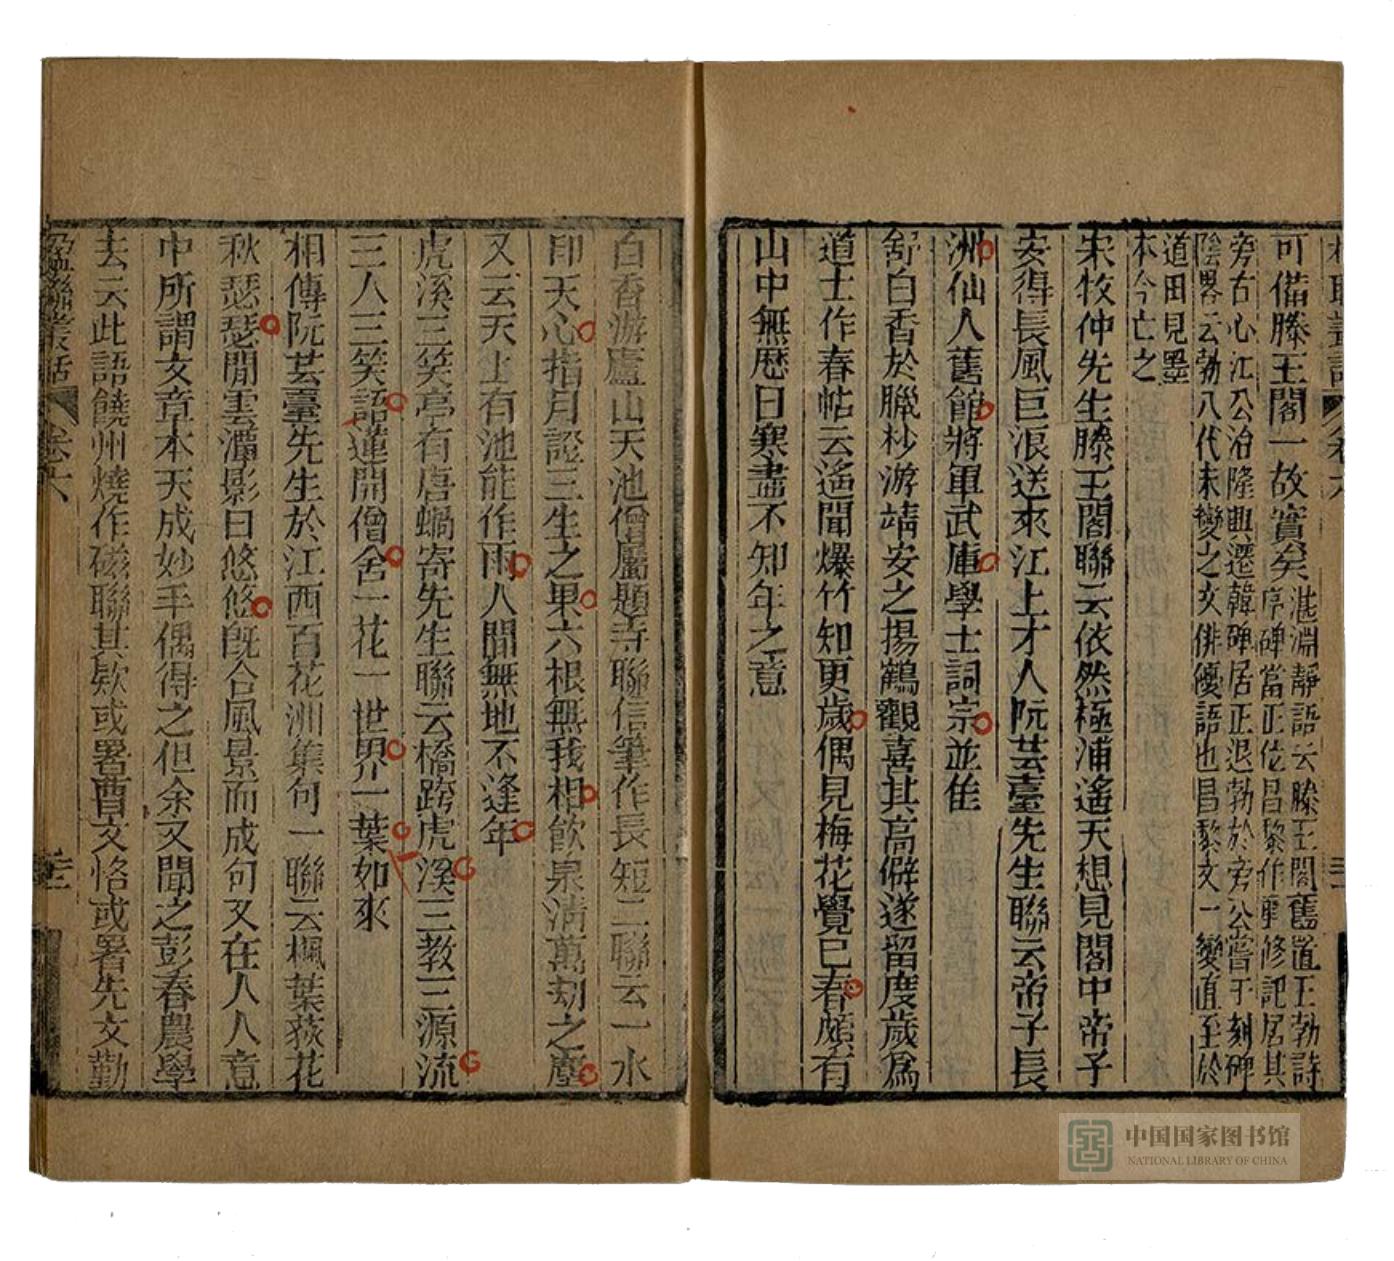 楹聯叢話 卷六
可備滕王閣一故實矣湛淵靜語云滕王閣舊置王勃詩
序碑當正位昌黎作重修記居其
旁右心江公治隆興遷韓碑居正退勃於旁公嘗于刻碑
陰畧云勃八代未變之文俳優語也昌黎文一變直至於
道田見墨
本今亡之
宋牧仲先生滕王閣聯云依然極浦遙天想見閣中帝子
安得長風巨浪送來江上才人阮芸臺先生聯云帝子長
洲仙人舊館將軍武庫學士詞宗並佳
舒白香於臘杪游靖安之揚鶴觀喜其高僻遂留度歲爲
道士作春帖云遙聞爆竹知更歲偶見梅花覺已春頗有
山中無歷日寒盡不知年之意
白香游廬山天池僧屬題寺聯信筆作長短二聯云一水
印天心指月證三生之果六根無我相飲泉淸萬劫之塵
又云天上有池能作雨人間無地不逢年
虎溪三笑亭有唐蝸寄先生聯云橋跨虎溪三教三源流
三人三笑語蓮開僧舍一花一世界一葉一如來
相傳阮芸臺先生於江西百花洲集句一聯云楓葉荻花
秋瑟瑟閒雲潭影日悠悠旣合風景而成句又在人人意
中所謂文章本天成妙手偶得之但余又聞之彭春農學
去云此語饒州燒作磁聯其欵或署曹文恪或署先文勤
楹聯叢話 卷六
中国国家图书馆
NATIONAL LIBRARY OF CHINA